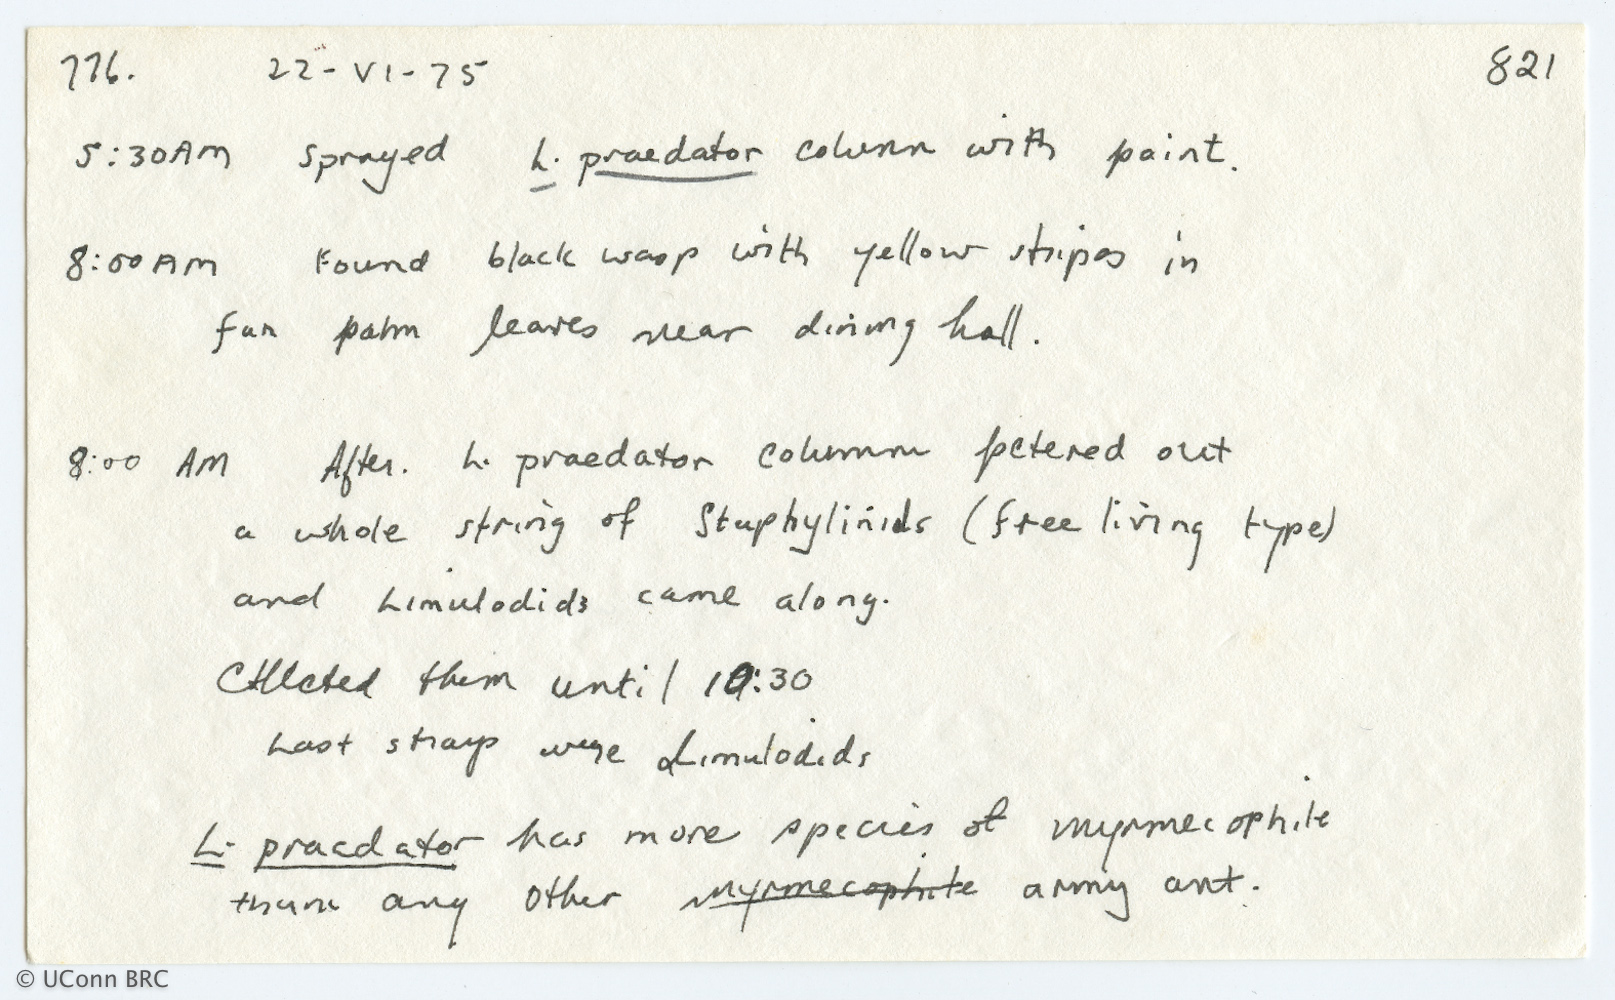 776. 22-VI-75 821
5:30AM Sprayed L. praedator column with paint.
8:00AM Found black wasp with yellow stripes in
fan palm leaves near dining hall.
8:00 AM After. L. praedator column petered out
a whole string of Staphylinids (free living type)
and Limulodids came along.
Collected them until 10:30
Last strays were Limulodids
L. praedator has more species of myrmecophile
than any other myrmecophile army ant.
© UConn BRC